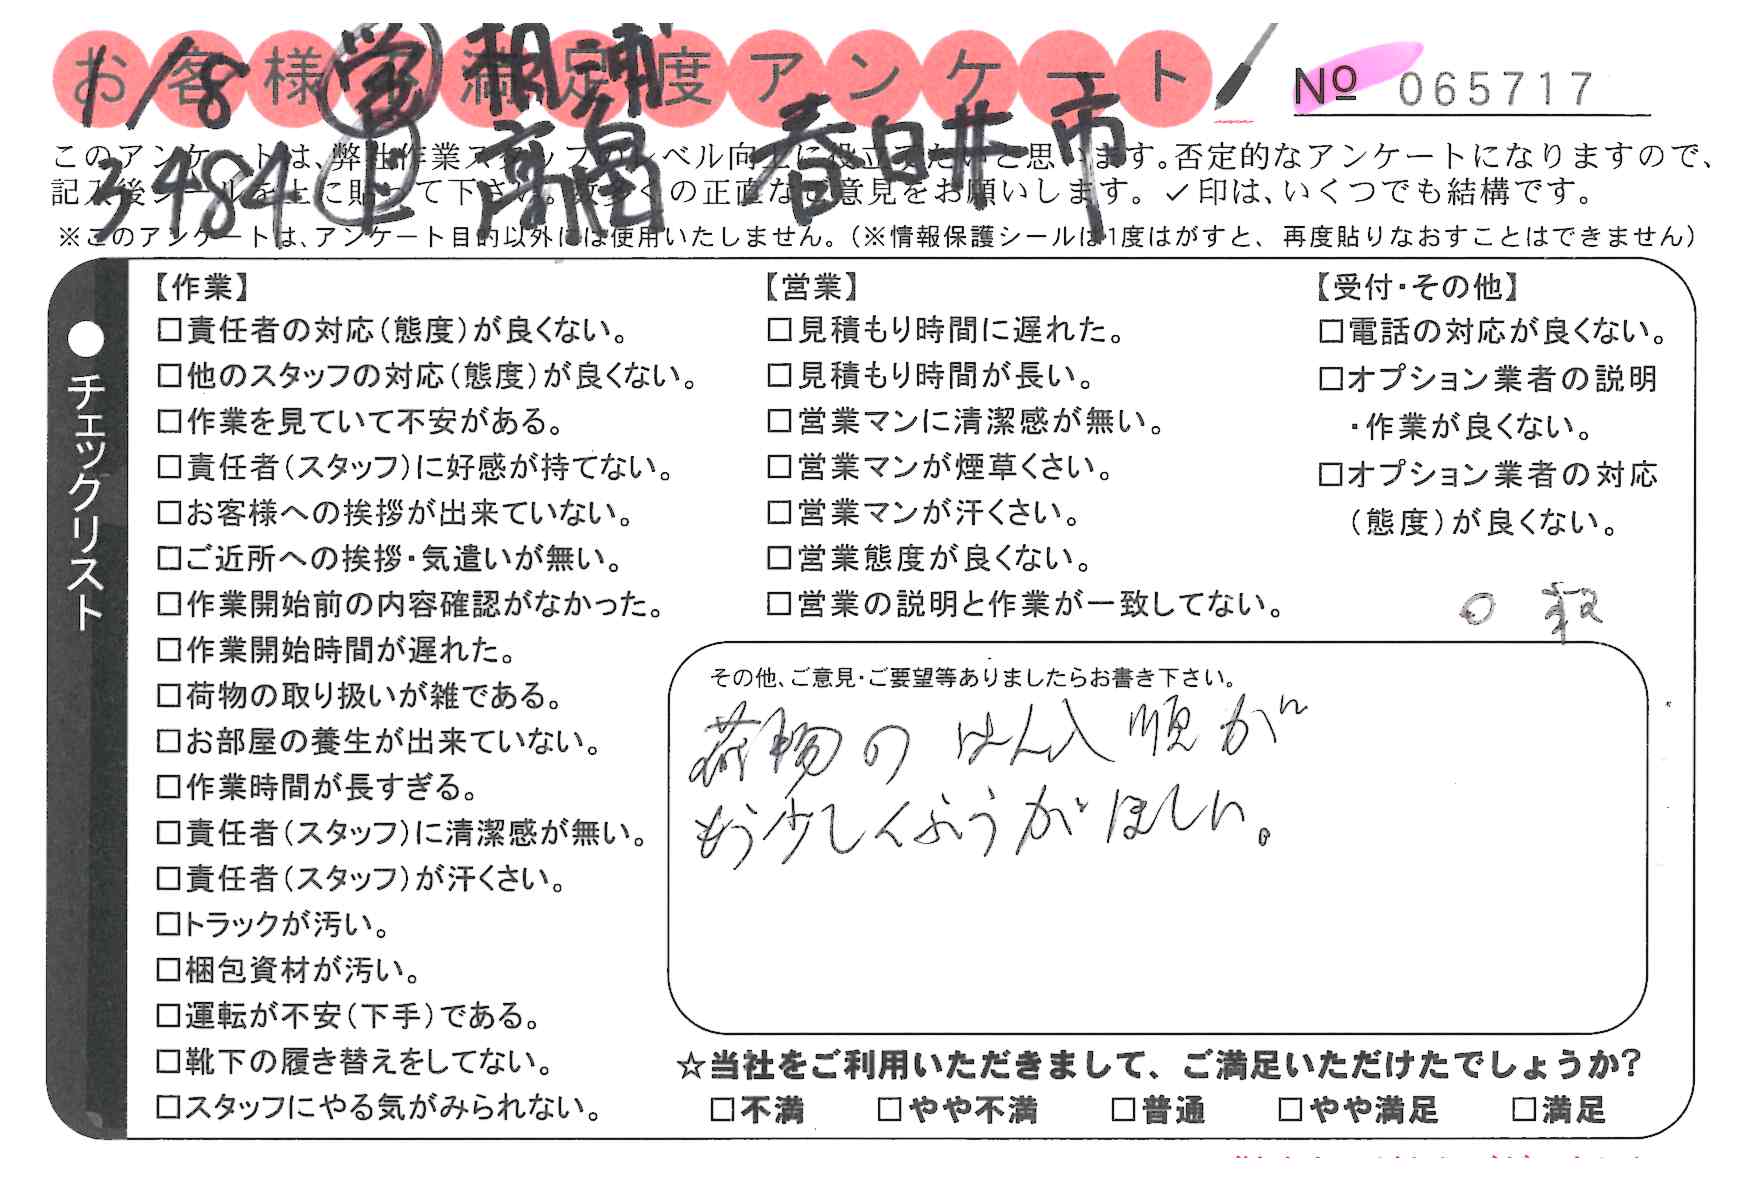 お客様の満足度アンケート
№ 065717
1/8 営 相浦
3484 上 高畠 春日井市
このアンケートは、弊社作業スタッフのレベル向上に役立てたいと思います。否定的なアンケートになりますので、
記入後シールを上に貼って下さい。数多くの正直なご意見をお願いします。✓印は、いくつでも結構です。
※このアンケートは、アンケート目的以外には使用いたしません。（※情報保護シールは1度はがすと、再度貼りなおすことはできません）
●チェックリスト
【作業】
□責任者の対応（態度）が良くない。
□他のスタッフの対応（態度）が良くない。
□作業を見ていて不安がある。
□責任者（スタッフ）に好感が持てない。
□お客様への挨拶が出来ていない。
□ご近所への挨拶・気遣いが無い。
□作業開始前の内容確認がなかった。
□作業開始時間が遅れた。
□荷物の取り扱いが雑である。
□お部屋の養生が出来ていない。
□作業時間が長すぎる。
□責任者（スタッフ）に清潔感が無い。
□責任者（スタッフ）が汗くさい。
□トラックが汚い。
□梱包資材が汚い。
□運転が不安（下手）である。
□靴下の履き替えをしてない。
□スタッフにやる気がみられない。
【営業】
□見積もり時間に遅れた。
□見積もり時間が長い。
□営業マンに清潔感が無い。
□営業マンが煙草くさい。
□営業マンが汗くさい。
□営業態度が良くない。
□営業の説明と作業が一致してない。
【受付・その他】
□電話の対応が良くない。
□オプション業者の説明
・作業が良くない。
□オプション業者の対応
（態度）が良くない。
その他、ご意見・ご要望等ありましたらお書き下さい。
荷物のはん入順が
もう少しくふうがほしい。
☆当社をご利用いただきまして、ご満足いただけたでしょうか？
□不満 □やや不満 □普通 □やや満足 □満足